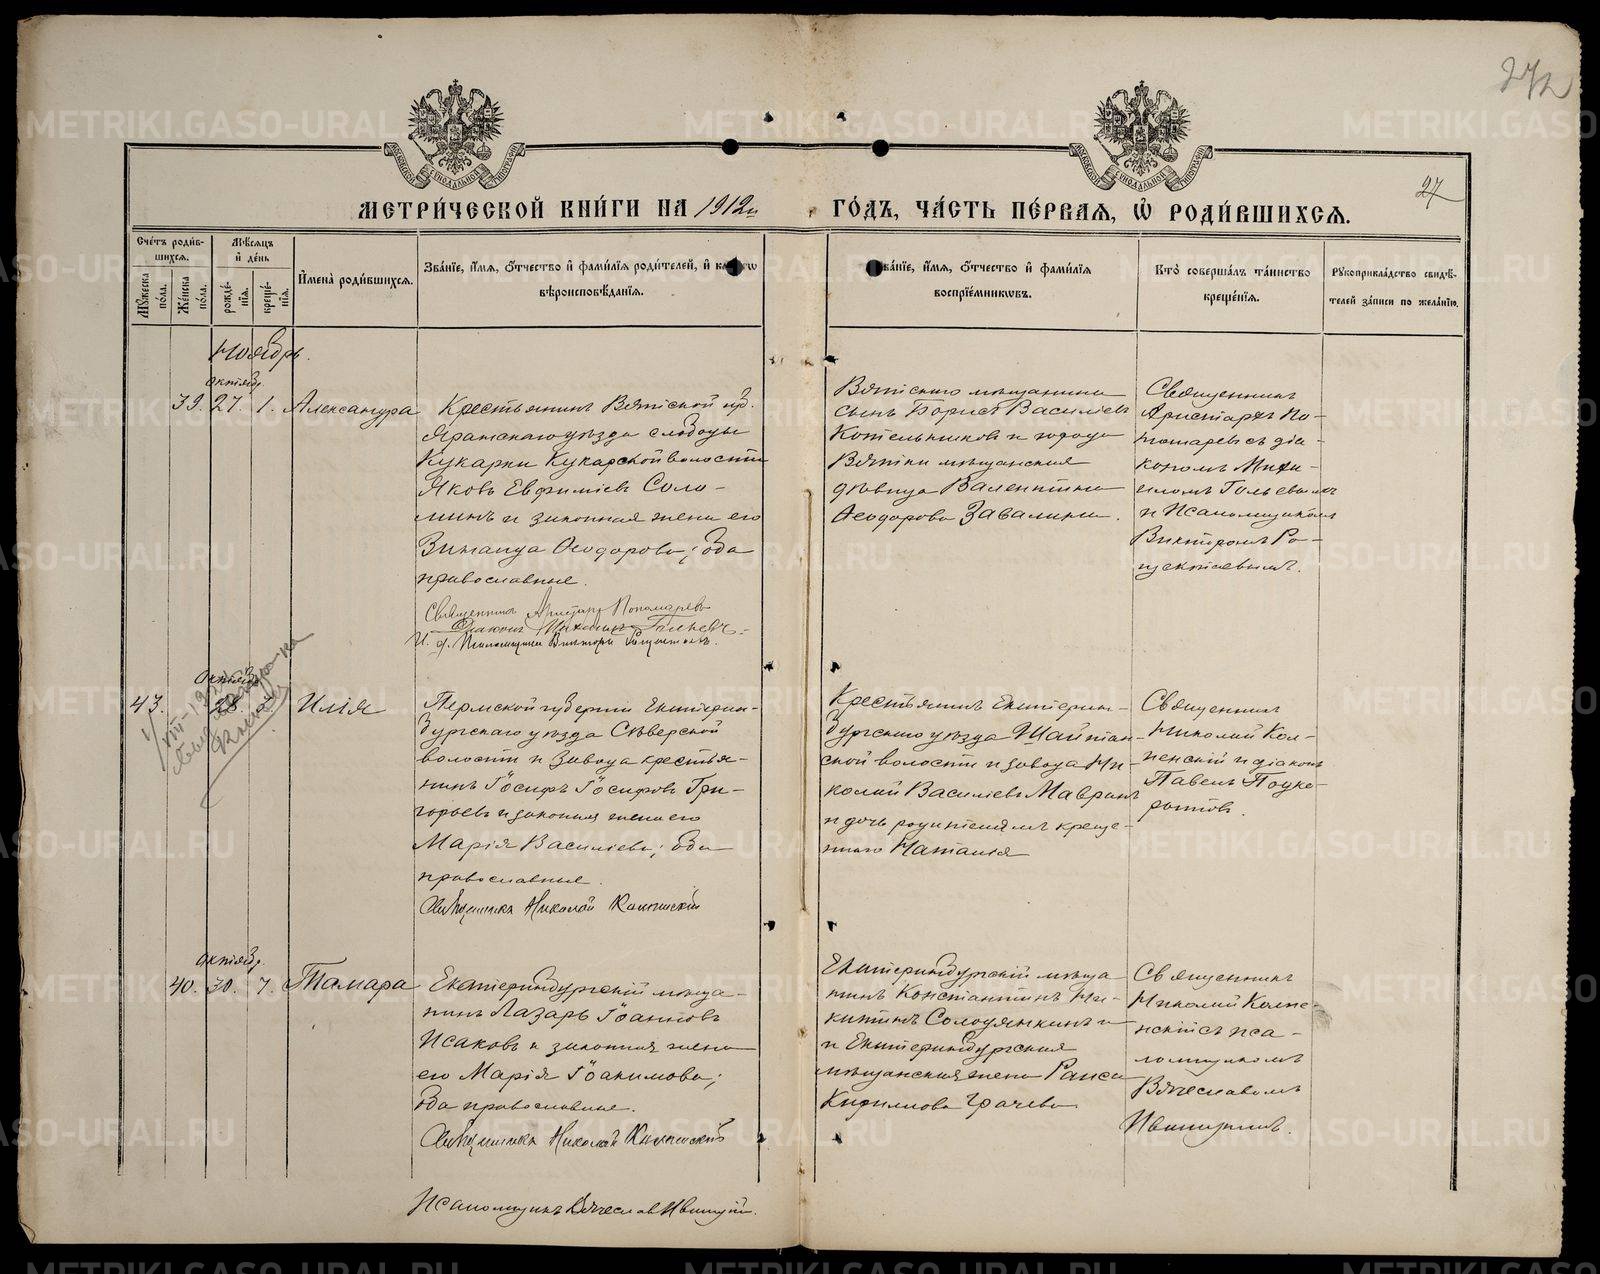 272
27
МЕТРИ́ЧЕСКОЙ КНИ́ГИ НА 1912й ГО́ДЪ, ЧА́СТЬ ПЕ́РВАѦ, Ѡ҆ РОДИ́ВШИХСѦ.
Сче́тъ роди́в-
шихсѧ.
Му́жеска по́ла.
Же́нска по́ла.
Мѣ́сѧцъ
и҆ де́нь
рожде́-
нїѧ.
креще́-
нїѧ.
И҆мена̀ роди́вшихсѧ.
Зва́нїе, и҆́мѧ, ѻ҆́тчество и҆ фами́лїѧ роди́телей, и҆
вѣроисповѣ́данїѧ.
Зва́нїе, и҆́мѧ, ѻ҆́тчество и҆ фами́лїѧ
воспрїе́мникѡвъ.
Кто̀ соверша́лъ та́инство
креще́нїѧ.
Рꙋкоприкла́дство свидѣ́-
телей за́писи по жела́нїю.
Ноябрь.
октябр.
39. 27. 1. Александра
Крестьянинъ Вятской гр.
Яранскаго уѣзда слободы
Кукарки Кукарской волости
Яковъ Евфиміевъ Соло-
минъ и законная жена его
Ѳеодорова; оба
православные.
Священникъ Аристархъ Пономаревъ
Діаконъ Михаилъ
И. д. Псаломщика Викторъ
Вятскаго мѣщанина
сынъ Борисъ Василіевъ
Котельниковъ и города
Вятки мѣщанская
дѣвица Валентина
Ѳеодорова Завалина.
Священникъ
Аристархъ По-
номаревъ съ діа-
кономъ Миха-
иломъ
и Псаломщикомъ
Викторомъ
октябр.
43. 28. Илія
Пермской губерніи Екатерин-
бургскаго уѣзда Сѣверской
волости и завода крестья-
нинъ Іосифъ Іосифовъ Гри-
горьевъ и законная жена его
Марія Василіева; оба
православные.
Священникъ Николай
Крестьянинъ Екатерин-
бургскаго уѣзда Шайтан-
ской волости и завода Ни-
колай Василіевъ Мавринъ
и дочь родителямъ креще-
ннаго Наталія
Священникъ
Николай
и діаконъ
Павелъ
октябр.
40. 30. 7. Тамара
Екатеринбургскій мѣща-
нинъ Лазарь Іоанновъ
Исаковъ и законная жена
его Марія Іоакимова;
оба православные.
Священникъ Николай
Псаломщикъ Вячеславъ
Екатеринбургскій мѣща-
нинъ Константинъ Ни-
китинъ Солодянкинъ и
и Екатеринбургская
мѣщанская жена Раиса
Кирилова Грачева
Священникъ
Николай
съ пса-
ломщикомъ
Вячеславомъ
METRIKI.GASO-URAL.RU